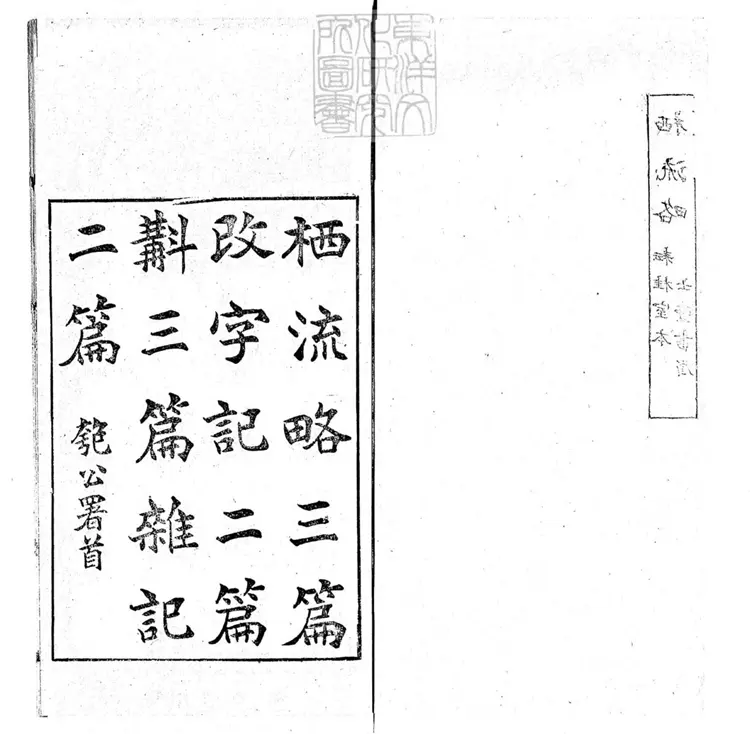 東洋文
化研究
所圖書
栖流略
栖流略三篇
改字記二篇
斠三篇雜記
二篇
匏公署首